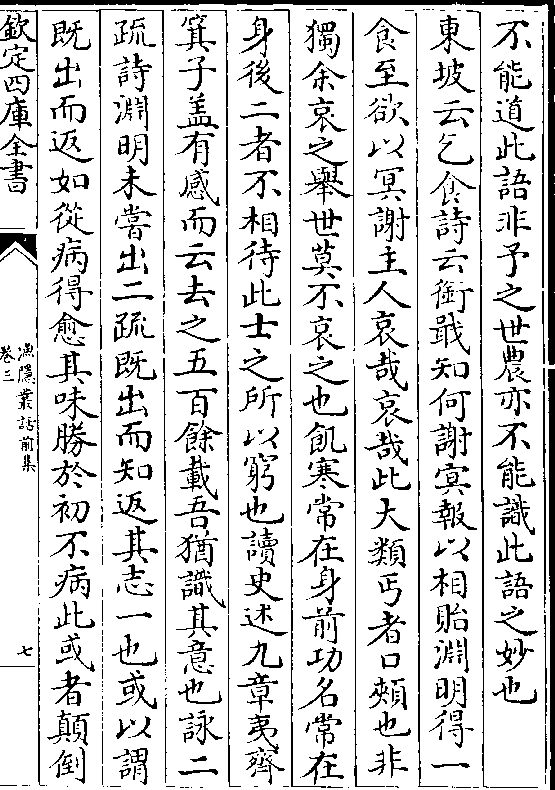 不能道此語非予之世農亦不能識此語之妙也
東坡云乞食詩云銜戢知何謝冥報以相貽淵明得一
食至欲以冥謝主人哀哉哀哉此大類丐者口頰也非
獨余哀之舉世莫不哀之也飢寒常在身前功名常在
身後二者不相待此士之所以窮也讀史述九章夷齊
箕子盖有感而云去之五百餘載吾猶識其意也詠二
疏詩淵明未嘗出二疏既出而知返其志一也或以謂
既出而返如從病得愈其味勝於初不病此或者顛倒
欽定四庫全書
漁隱叢話前集
卷三
七